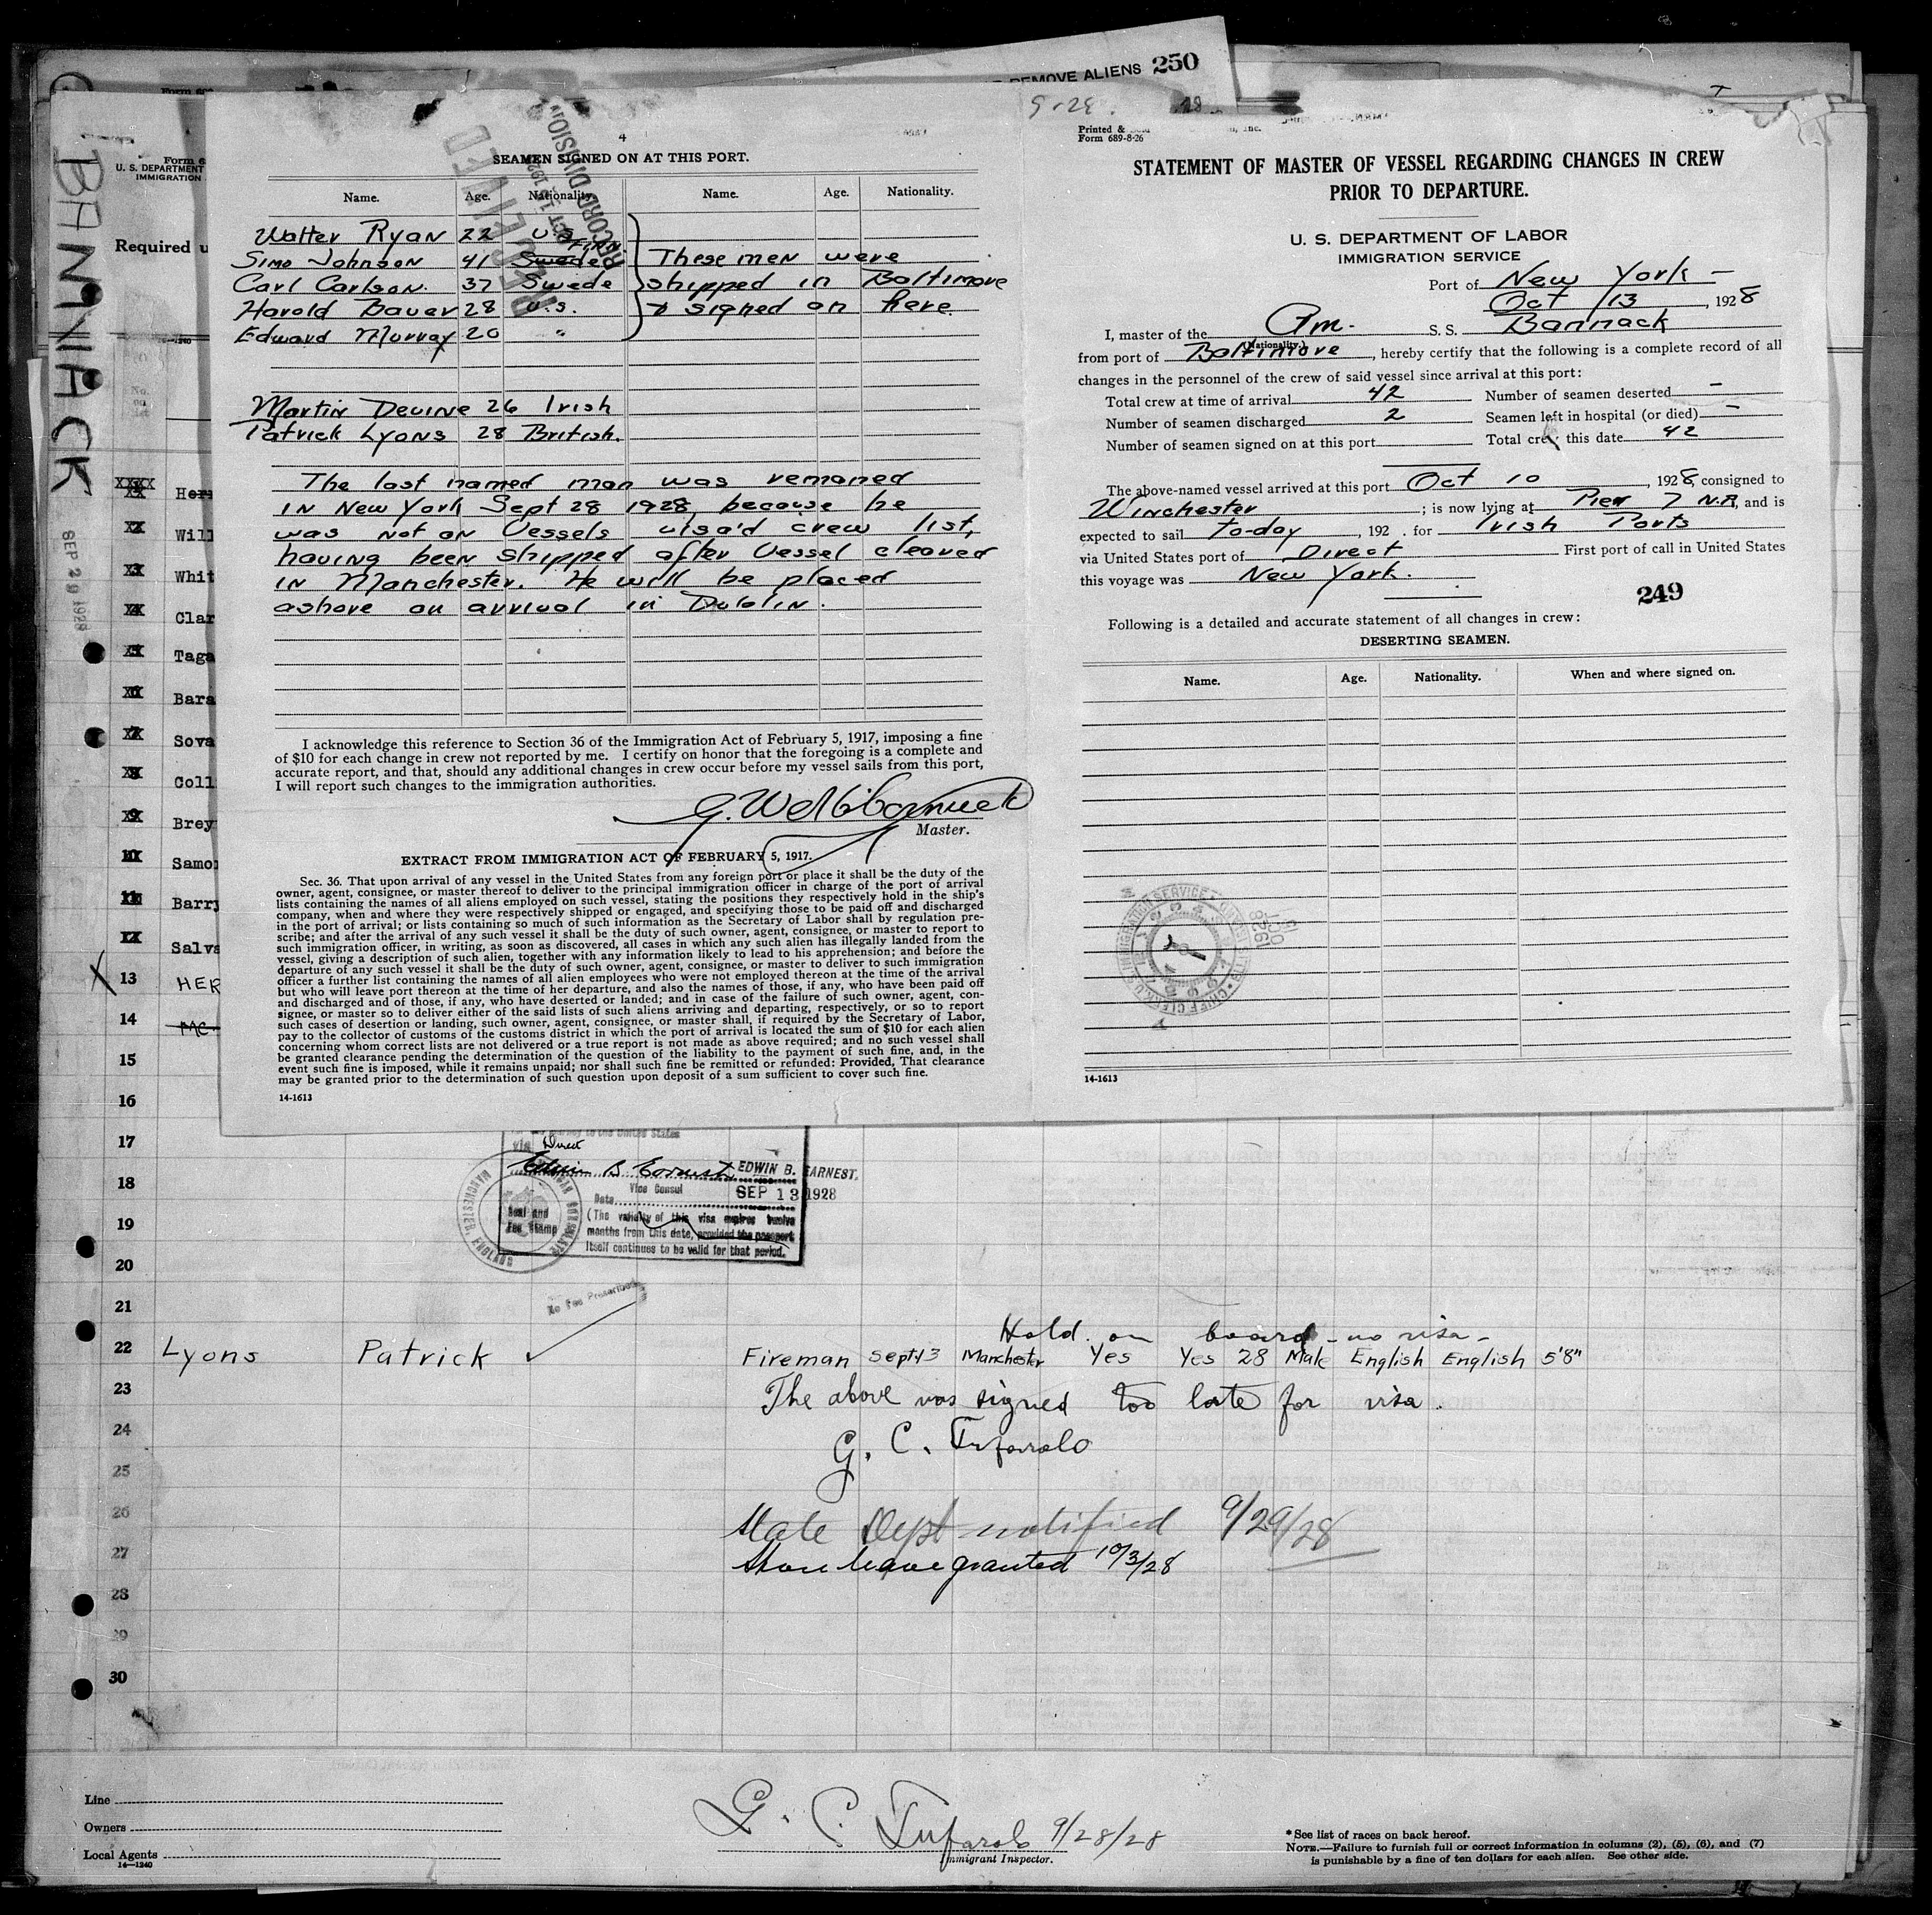 REMOVE ALIENS 250
BANNACK
SEP 29 1928
U. S. DEPARTMENT
IMMIGRATION
Required u
No.
on
list
Will
3 Whit
4 Clar
5 Taga
6 Bara
7 Sova
8 Coll
9 Brey
10 Samo
11 Barry
Salva
13 HER
14 Mc.
15
16
17
18
19
20
21
4
SEAMEN SIGNED ON AT THIS PORT.
RECEIVED
RECORD DIVISION
Name. Age. Nationality. Name. Age. Nationality.
Walter Ryan 22 U.S.
Simo Johnson 41 Swede Finn.
Carl Carlson. 37 Swede
Harold Bauer 28 U.S.
Edward Murray 20 "
These men were
shipped in Baltimore
& signed on here.
Martin Devine 26 Irish
Patrick Lyons 28 British.
The last named man was remaned
in New York Sept 28 1928, because he
was not on Vessels visa'd crew list,
having been shipped after Vessel cleared
in Manchester. He will be placed
ashore on arrival in Dublin.
I acknowledge this reference to Section 36 of the Immigration Act of February 5, 1917, imposing a fine
of $10 for each change in crew not reported by me. I certify on honor that the foregoing is a complete and
accurate report, and that, should any additional changes in crew occur before my vessel sails from this port,
I will report such changes to the immigration authorities.
Master.
EXTRACT FROM IMMIGRATION ACT OF FEBRUARY 5, 1917.
Sec. 36. That upon arrival of any vessel in the United States from any foreign port or place it shall be the duty of the
owner, agent, consignee, or master thereof to deliver to the principal immigration officer in charge of the port of arrival
lists containing the names of all aliens employed on such vessel, stating the positions they respectively hold in the ship's
company, when and where they were respectively shipped or engaged, and specifying those to be paid off and discharged
in the port of arrival; or lists containing so much of such information as the Secretary of Labor shall by regulation pre-
scribe; and after the arrival of any such vessel it shall be the duty of such owner, agent, consignee, or master to report to
such immigration officer, in writing, as soon as discovered, all cases in which any such alien has illegally landed from the
vessel, giving a description of such alien, together with any information likely to lead to his apprehension; and before the
departure of any such vessel it shall be the duty of such owner, agent, consignee, or master to deliver to such immigration
officer a further list containing the names of all alien employees who were not employed thereon at the time of the arrival
but who will leave port thereon at the time of her departure, and also the names of those, if any, who have been paid off
and discharged and of those, if any, who have deserted or landed; and in case of the failure of such owner, agent, con-
signee, or master so to deliver either of the said lists of such aliens arriving and departing, respectively, or so to report
such cases of desertion or landing, such owner, agent, consignee, or master shall, if required by the Secretary of Labor,
pay to the collector of customs of the customs district in which the port of arrival is located the sum of $10 for each alien
concerning whom correct lists are not delivered or a true report is not made as above required; and no such vessel shall
be granted clearance pending the determination of the question of the liability to the payment of such fine, and, in the
event such fine is imposed, while it remains unpaid; nor shall such fine be remitted or refunded: Provided, That clearance
may be granted prior to the determination of such question upon deposit of a sum sufficient to cover such fine.
14-1613
Printed &
Form 689-8-26
STATEMENT OF MASTER OF VESSEL REGARDING CHANGES IN CREW
PRIOR TO DEPARTURE.
U. S. DEPARTMENT OF LABOR
IMMIGRATION SERVICE
Port of New York -
Oct 13, 1928
I, master of the Am. S. S. Bannack
(Nationality.)
from port of Baltimore, hereby certify that the following is a complete record of all
changes in the personnel of the crew of said vessel since arrival at this port:
Total crew at time of arrival 42 Number of seamen deserted -
Number of seamen discharged 2 Seamen left in hospital (or died) -
Number of seamen signed on at this port Total crew this date 42
The above-named vessel arrived at this port Oct 10, 1928 consigned to
Winchester; is now lying at Pier 7 N.R, and is
expected to sail to-day, 192 . for Irish Ports
via United States port of Direct First port of call in United States
this voyage was New York.
249
Following is a detailed and accurate statement of all changes in crew:
DESERTING SEAMEN.
Name. Age. Nationality. When and where signed on.
14-1613
via Direct
EDWIN B. EARNEST.
Vice Consul
Date SEP 13 1928
Seal and
Fee Stamp
(The validity of this visa expires twelve
months from this date, provided the passport
itself continues to be valid for that period.
MANCHESTER, ENGLAND
No Fee Prescribed
Hold on board - no visa -
22 Lyons Patrick ✓ Fireman Sept 13 Manchester Yes Yes 28 Male English English 5'8"
23 The above was signed too late for visa.
24 G. C. Tufarolo
25
26 State Dept notified 9/29/28
27 Shore leave granted 10/3/28
28
29
30
Line
Owners
Local Agents
14-1240
G. C. Tufarolo 9/28/28
Immigrant Inspector.
* See list of races on back hereof.
NOTE.—Failure to furnish full or correct information in columns (2), (5), (6), and (7)
is punishable by a fine of ten dollars for each alien. See other side.